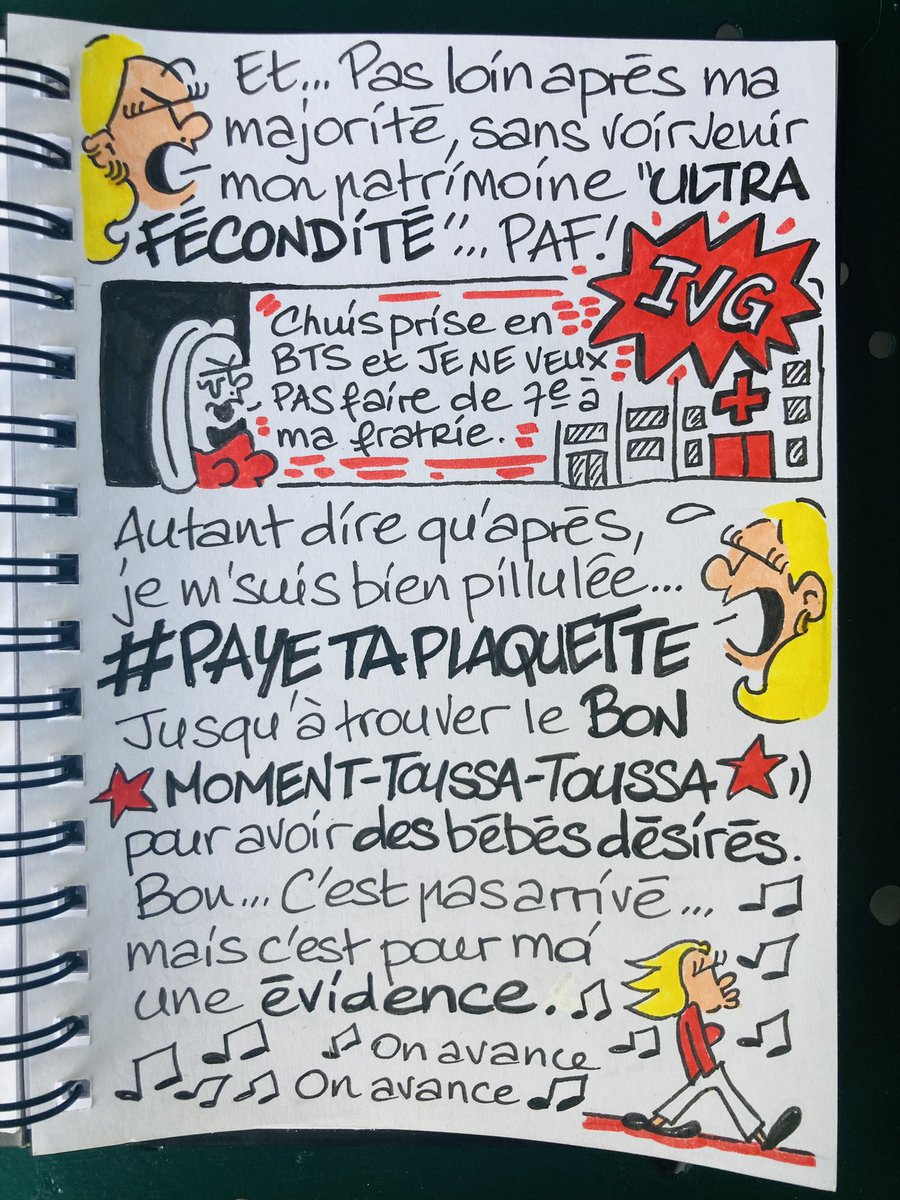 Et... Pas loin après ma
majorité, sans voir venir
mon patrimoine "ULTRA
FÉCONDITÉ"... PAF!
IVG
Chuis prise en
BTS et JE NE VEUX
PAS faire de 7e à
ma fratrie.
Autant dire qu'après,
je m'suis bien pillulée...
#PAYETAPLAQUETTE
Jusqu'à trouver le BON
MOMENT-TOUSSA-TOUSSA
pour avoir des bébés désirés.
Bon... C'est pas arrivé...
mais c'est pour moi
une évidence.
On avance
On avance